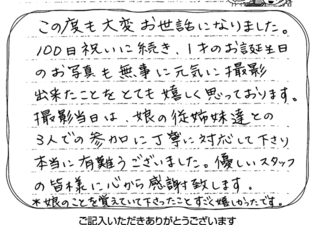 この度も大変お世話になりました。
100日祝いに続き、1才のお誕生日
のお写真も無事に元気に撮影
出来たことをとても嬉しく思っております。
撮影当日は、娘の従姉妹達との
3人での参加に丁寧に対応して下さり
本当に有難うございました。優しいスタッフ
の皆様に心から感謝致します。
*娘のことを覚えていて下さったことすごく嬉しかったです。
ご記入いただきありがとうございます